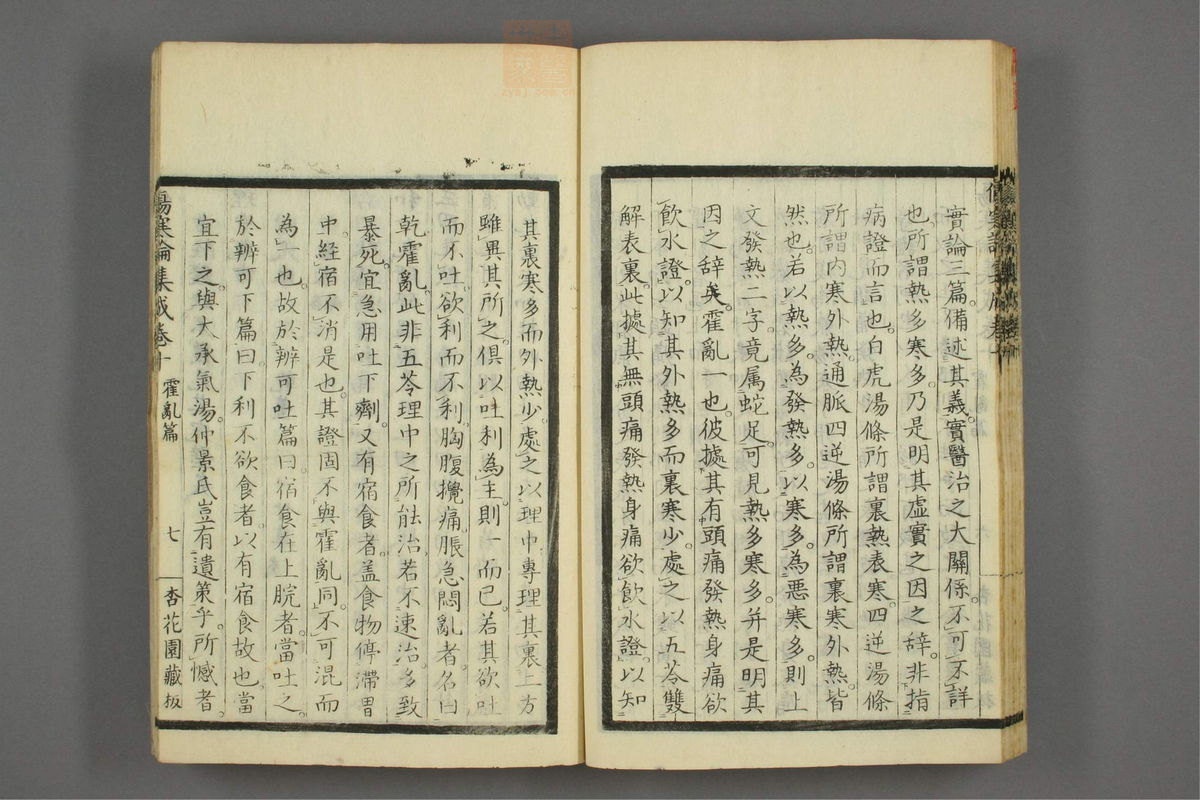 實論三篇備述其義實醫治之大關係不可不詳
也所謂熱多寒多乃是明其虛實之因之辭非指
病證而言也白虎湯條所謂裏熱表寒四逆湯條
所謂内寒外熱通脈四逆湯條所謂裏寒外熱皆
然也若以熱多為發熱多以寒多為惡寒多則上
文發熱二字竟属蛇足可見熱多寒多并是明其
因之辞矣霍亂一也彼據其有頭痛發熱身痛欲
飲水證以知其外熱多而裏寒少處之以五苓雙
解表裏此據其無頭痛發熱身痛欲飲水證以知
其裏寒多而外熱少處之以理中專理其裏二方
雖異其所之俱以吐利為主則一而已若其欲吐
而不吐欲利而不利胸腹攪痛脹急悶亂者名曰
乾霍亂此非五苓理中之所能治若不速治多致
暴死宜急用吐下劑又有宿食者盖食物停滯胃
中經宿不消是也其證固不與霍亂同不可混而
為一也故於辨可吐篇曰宿食在上脘者當吐之
於辨可下篇曰下利不欲食者以有宿食故也當
宜下之與大承氣湯仲景氏豈有遺策乎所憾者
傷寒論集成卷十 霍亂篇 七 杏花園藏板